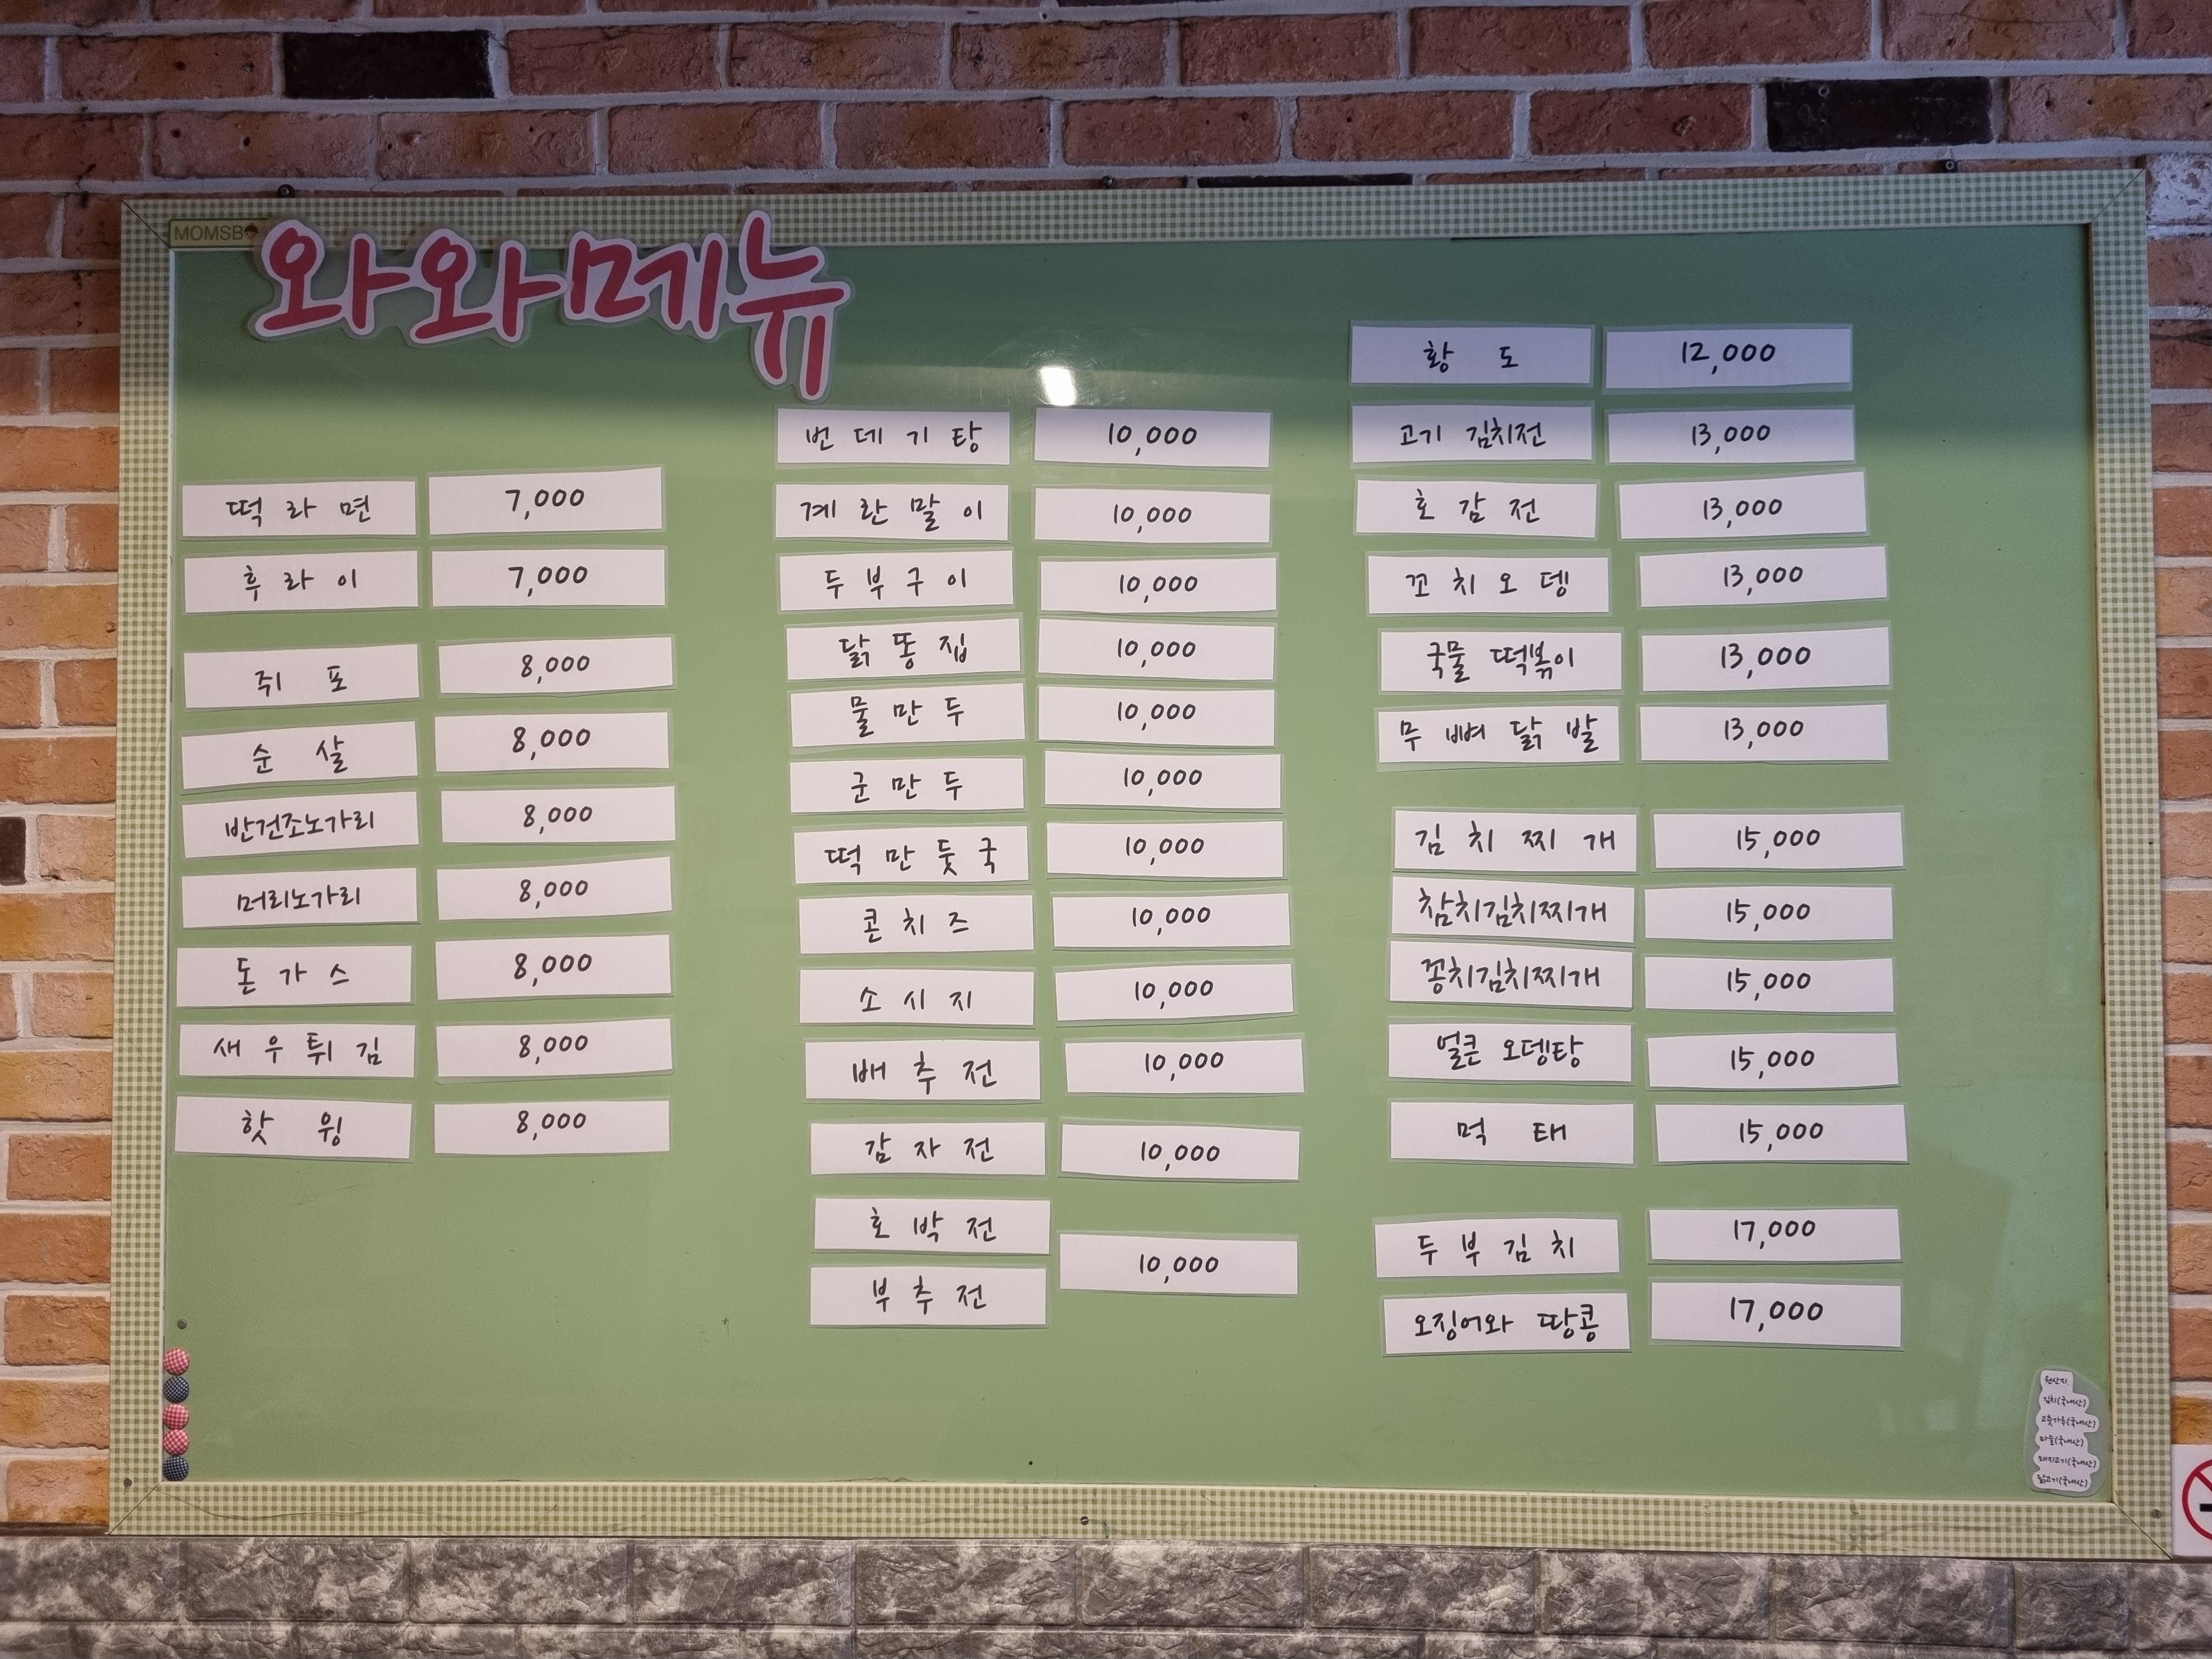 MOMSB
와와메뉴
떡라면 7,000
후라이 7,000
쥐포 8,000
순살 8,000
반건조노가리 8,000
머리노가리 8,000
돈가스 8,000
새우튀김 8,000
핫윙 8,000
번데기탕 10,000
계란말이 10,000
두부구이 10,000
닭똥집 10,000
물만두 10,000
군만두 10,000
떡만둣국 10,000
콘치즈 10,000
소시지 10,000
배추전 10,000
감자전 10,000
호박전
부추전 10,000
황도 12,000
고기 김치전 13,000
호감전 13,000
꼬치오뎅 13,000
국물 떡볶이 13,000
무뼈닭발 13,000
김치찌개 15,000
참치김치찌개 15,000
꽁치김치찌개 15,000
얼큰 오뎅탕 15,000
먹태 15,000
두부김치 17,000
오징어와 땅콩 17,000
원산지
김치(국내산)
고춧가루(국내산)
마늘(국내산)
돼지고기(국내산)
닭고기(국내산)